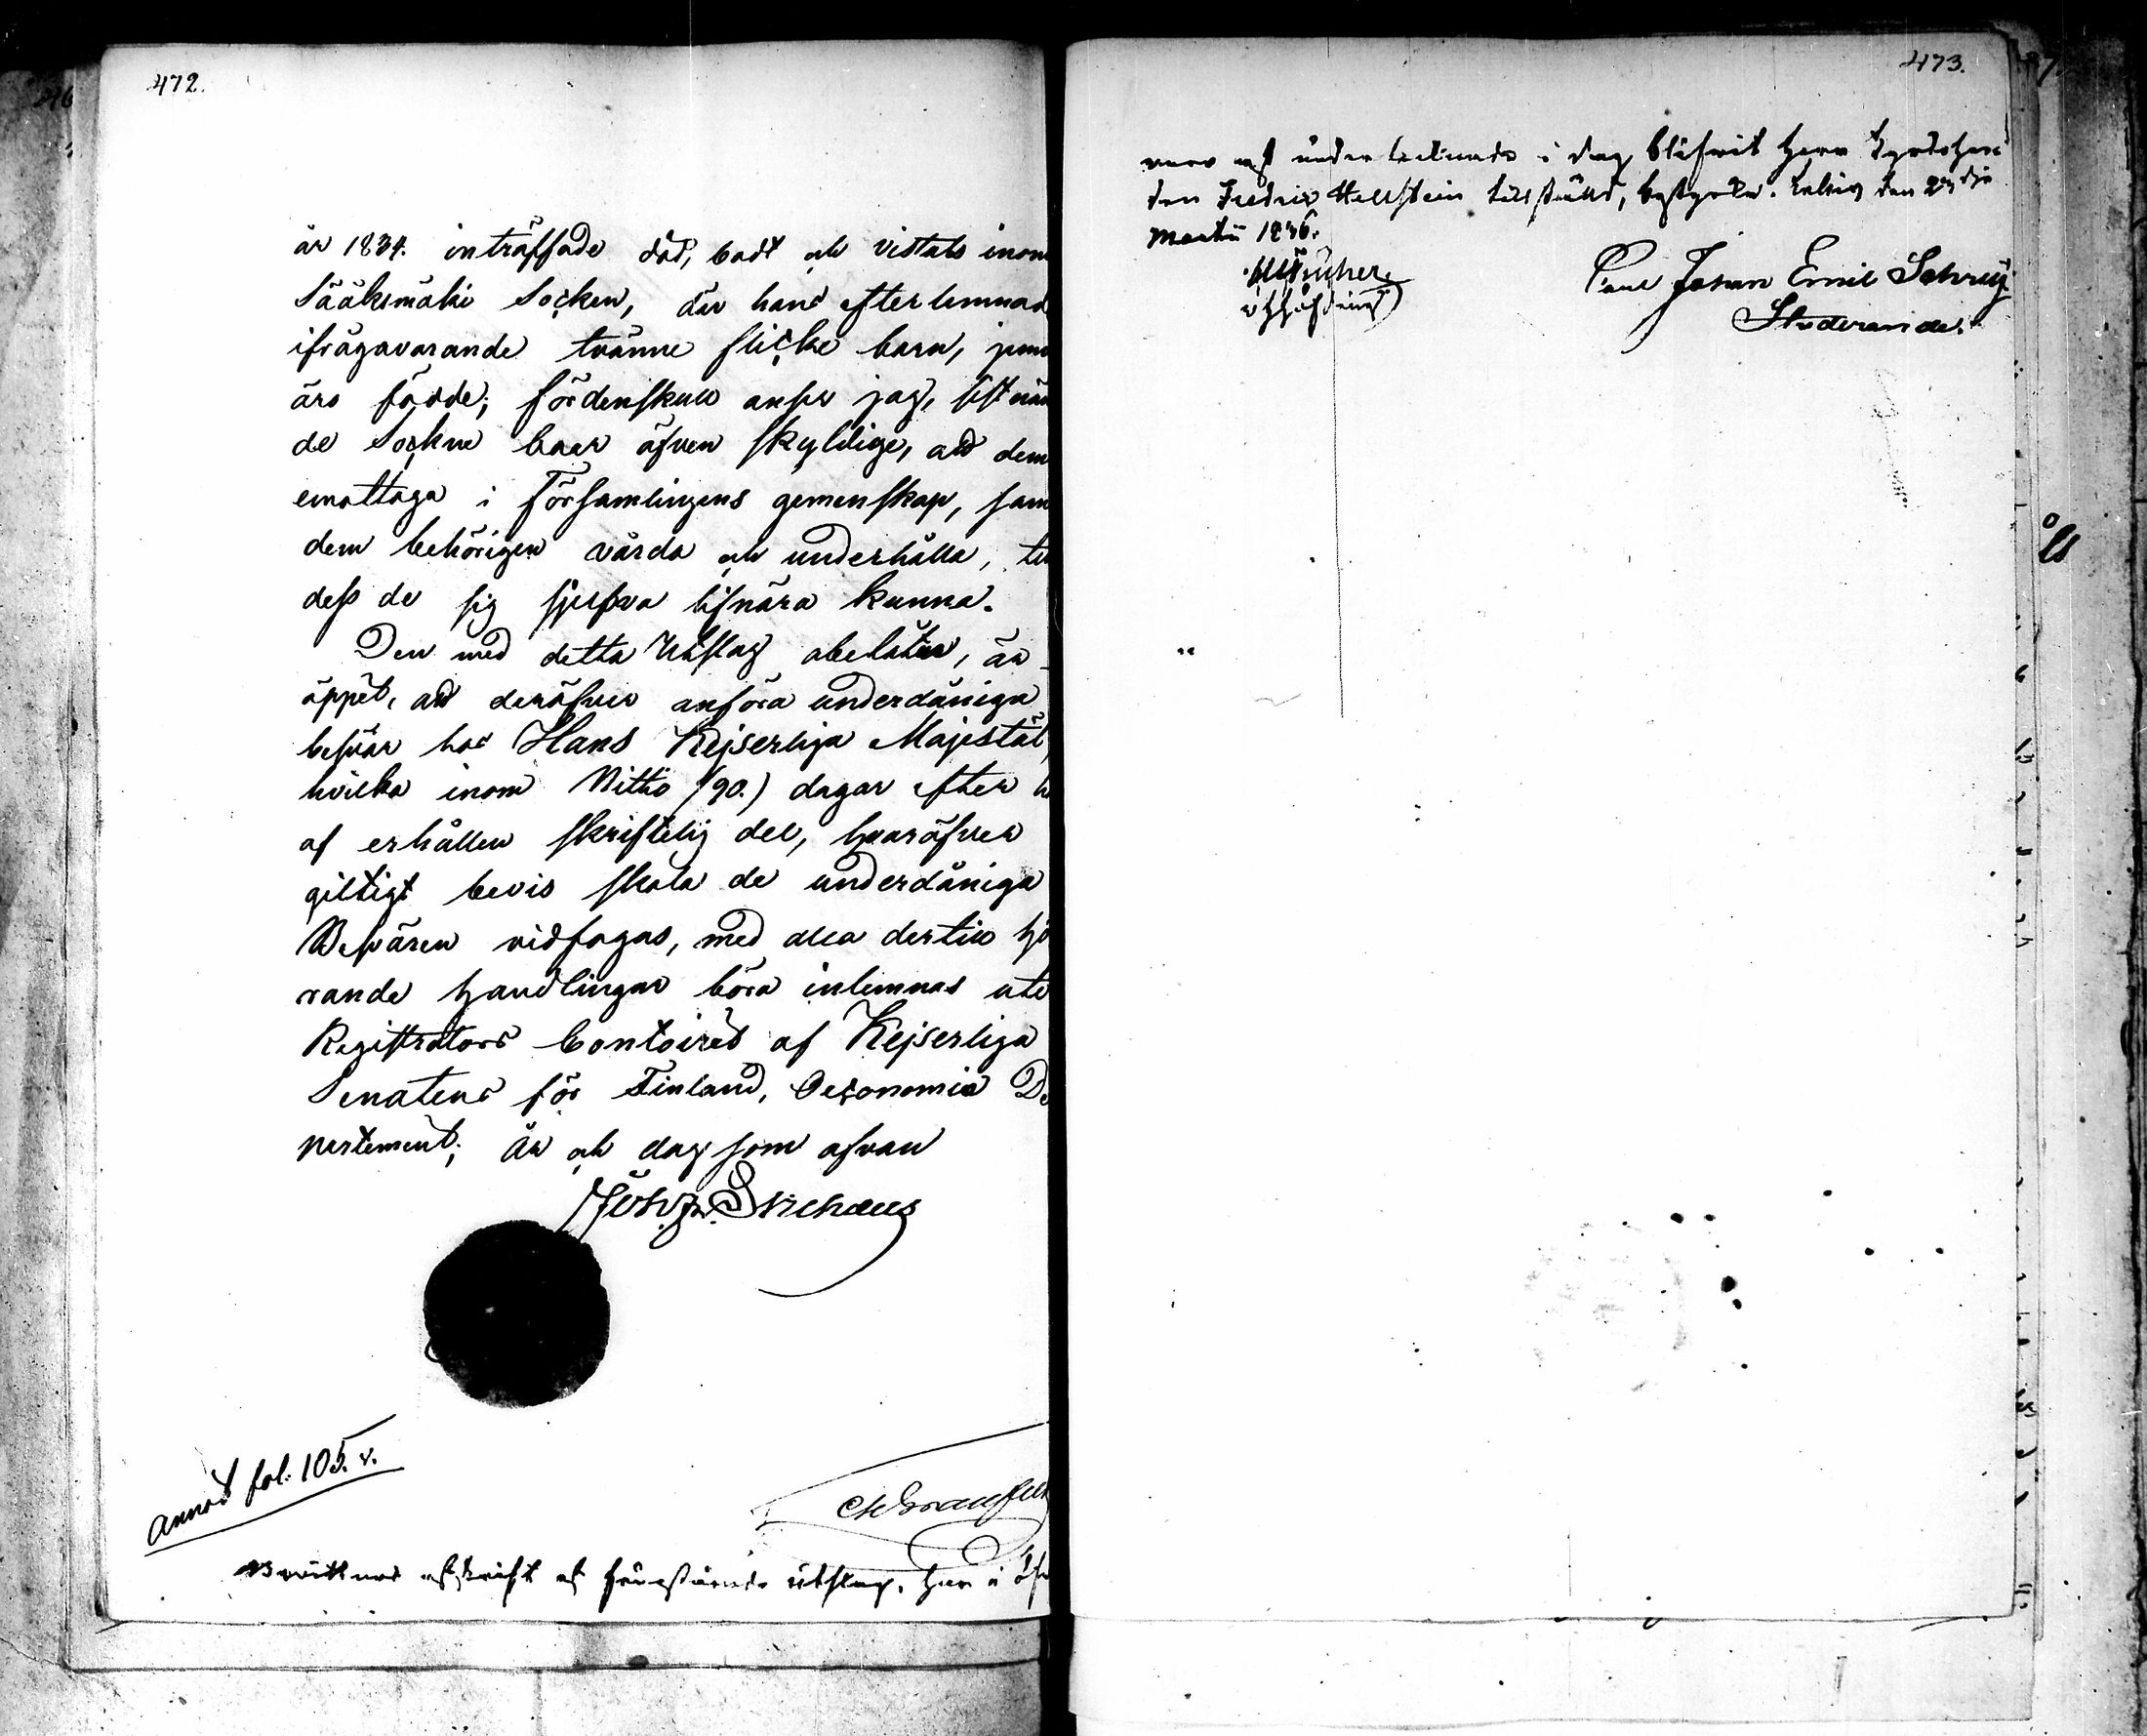 472.
år 1834. inträffade död, bodt och vistats inom
Sääksmäki Socken, där hans efterlemnad
ifrågavarande tvänne flicke barn,
äro födde; fördenskull anser jag, sistnäm
de Sockne boer äfven skyldige, att dem
emottaga i Församlingens gemenskap, sam
dem behörigen vårda och underhålla, till
dess de sig sjelfva lifnära kunna.
Den med detta Utslag obelåten, är
öppet, att deröfver anföra underdåniga
besvär hos Hans Kejserliga Majestät,
hvilka inom Nittio (90.) dagar efter h
af erhållen skriftelig del, hvaröfver
giltigt bevis skola de underdåniga
Besvären vidfogas, med alla dertill hö
rande handlingar böra inlemnas uti
Registrators Contoiret af Kejserliga
Senatens för Finland, Oeconomie De
partement; År och dag som ofvan
annot fol: 105. v.
Bevittnad afskrift af framstående utslag, har i
473.
varo af undertecknade i dag blifvit Herr
den Fredric Hellstein tillställd, betygar. den 23dje
Martii 1836.
Carl Johan Emil
Studerande.